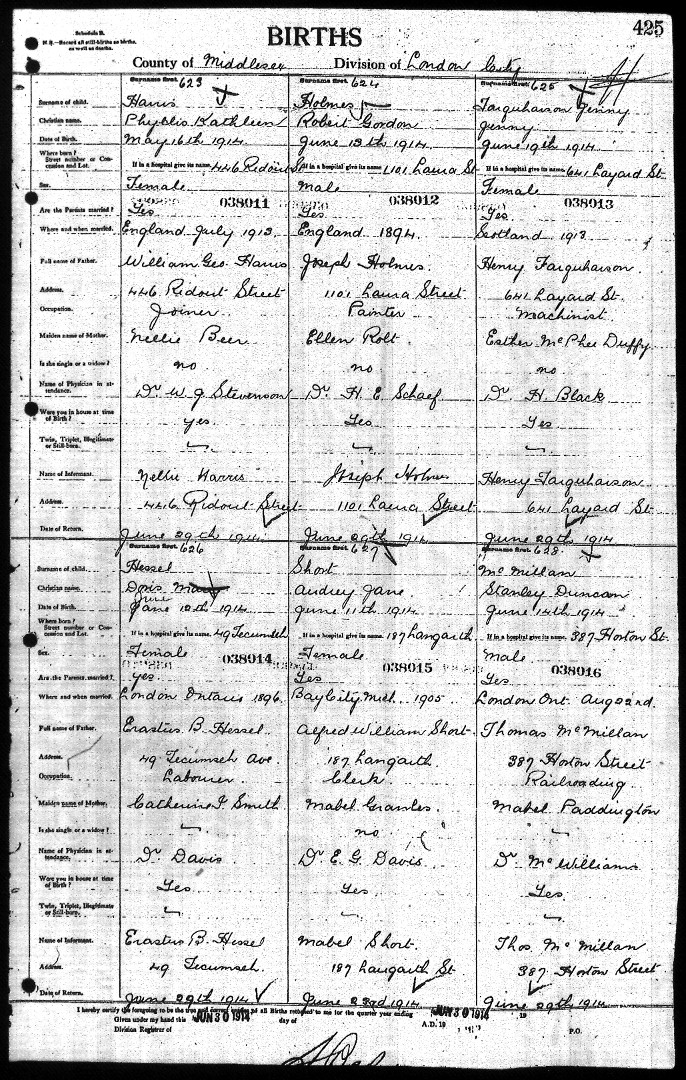 Schedule B.
N. B.—Record all still-births as births, as well as deaths.
BIRTHS
425
County of Middlesex Division of London City
Surname first. 623 Surname first. 624 Surname first. 625
Surname of child. Harris Holmes Farquharson Jenny
Christian name. Phyllis Kathleen Robert Gordon Jenny
Date of Birth. May 16th 1914 June 13th 1914 June 19th 1914
Where born?
Street number or Concession and Lot. If in a hospital give its name. 446 Ridout St If in a hospital give its name. 1101 Laura St If in a hospital give its name. 641 Layard St
Sex. Female Male Female
038011 038012 038013
Are the Parents married? Yes Yes Yes
Where and when married. England July 1913 England 1894 Scotland 1913
Full name of Father. William Geo. Harris Joseph Holmes. Henry Farquharson
Address. 446 Ridout Street 1101 Laura Street 641 Layard St.
Occupation. Joiner Painter Machinist.
Maiden name of Mother. Nellie Beer Ellen Rolt Esther McPhee Duffy
Is she single or a widow? no no no
Name of Physician in attendance. Dr W J Stevenson Dr H E Schaef Dr H. Black
Were you in house at time of Birth? yes. Yes Yes
Twin, Triplet, Illegitimate or Still-born.
Name of Informant. Nellie Harris Joseph Holmes Henry Farquharson
Address. 446 Ridout Street 1101 Laura Street 641 Layard St
Date of Return. June 29th 1914 June 29th 1914 June 29th 1914
Surname first. 626 Surname first. 627 Surname first. 628
Surname of child. Hessel Short McMillan
Christian name. Doris Mary Audrey Jane Stanley Duncan
June
Date of Birth. June 12th 1914 June 11th 1914 June 14th 1914
Where born?
Street number or Concession and Lot. If in a hospital give its name. 49 Tecumseh If in a hospital give its name. 187 Langarth If in a hospital give its name. 387 Horton St.
Sex. Female Female Male
038014 038015 038016
Are the Parents married? Yes Yes Yes
Where and when married. London Ontario 1896. Bay City Mich. 1905 London Ont. Aug 22nd.
Full name of Father. Erastus B. Hessel. Alfred William Short. Thomas McMillan
Address. 49 Tecumseh Ave 187 Langarth 387 Horton Street
Occupation. Labourer. Clerk Railroading
Maiden name of Mother. Catherine F. Smith Mabel Grantes. Mabel Paddington
Is she single or a widow? no
Name of Physician in attendance. Dr Davis Dr E. G. Davis Dr McWilliams
Were you in house at time of Birth? Yes Yes Yes.
Twin, Triplet, Illegitimate or Still-born.
Name of Informant. Erastus B. Hessel Mabel Short. Thos. McMillan
Address. 49 Tecumseh. 187 Langarth St. 387 Horton Street
Date of Return. June 29th 1914 June 23rd 1914 June 29th 1914
I hereby certify the foregoing to be the true and correct of all Births returned to me for the quarter year ending JUN 30 1914 19
Given under my hand this JUN 30 1914 day of A.D. 19
Division Registrar of P.O.